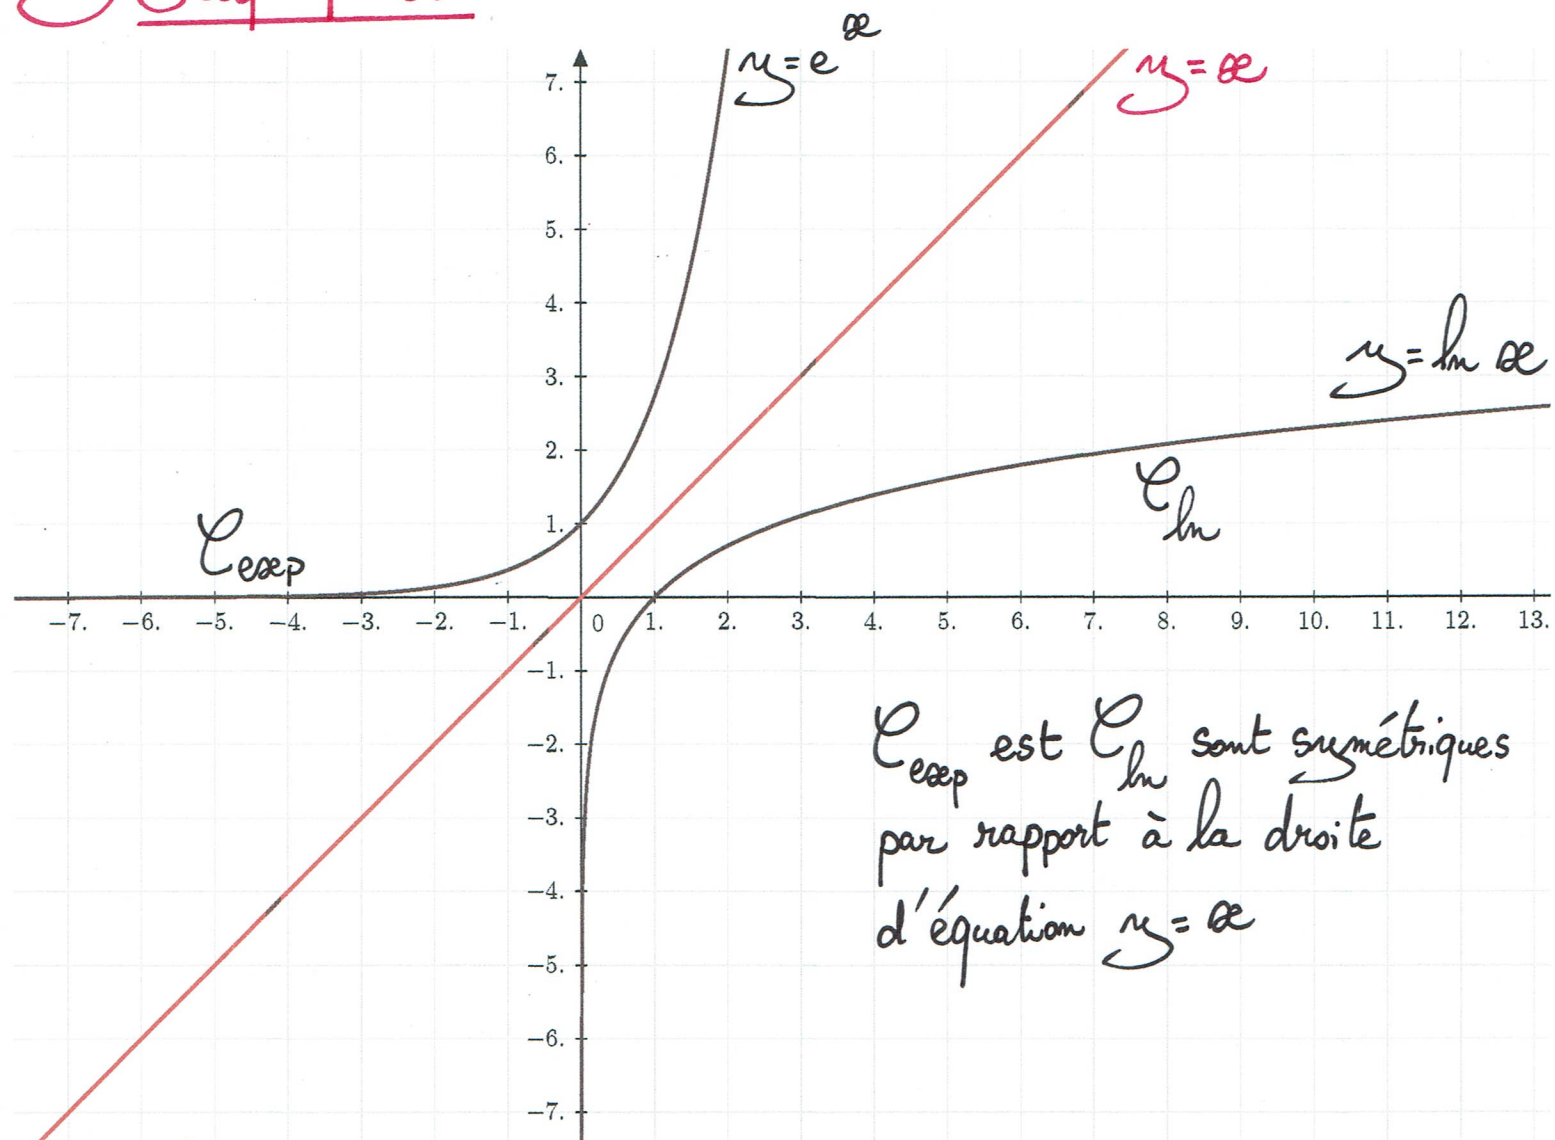 y=eˣ
y=x
7.
6.
5.
4.
3.
2.
1.
y=ln x
𝒞ln
𝒞exp
−7. −6. −5. −4. −3. −2. −1. 0 1. 2. 3. 4. 5. 6. 7. 8. 9. 10. 11. 12. 13.
−1.
−2.
−3.
−4.
−5.
−6.
−7.
𝒞exp est 𝒞ln sont symétriques
par rapport à la droite
d'équation y=x